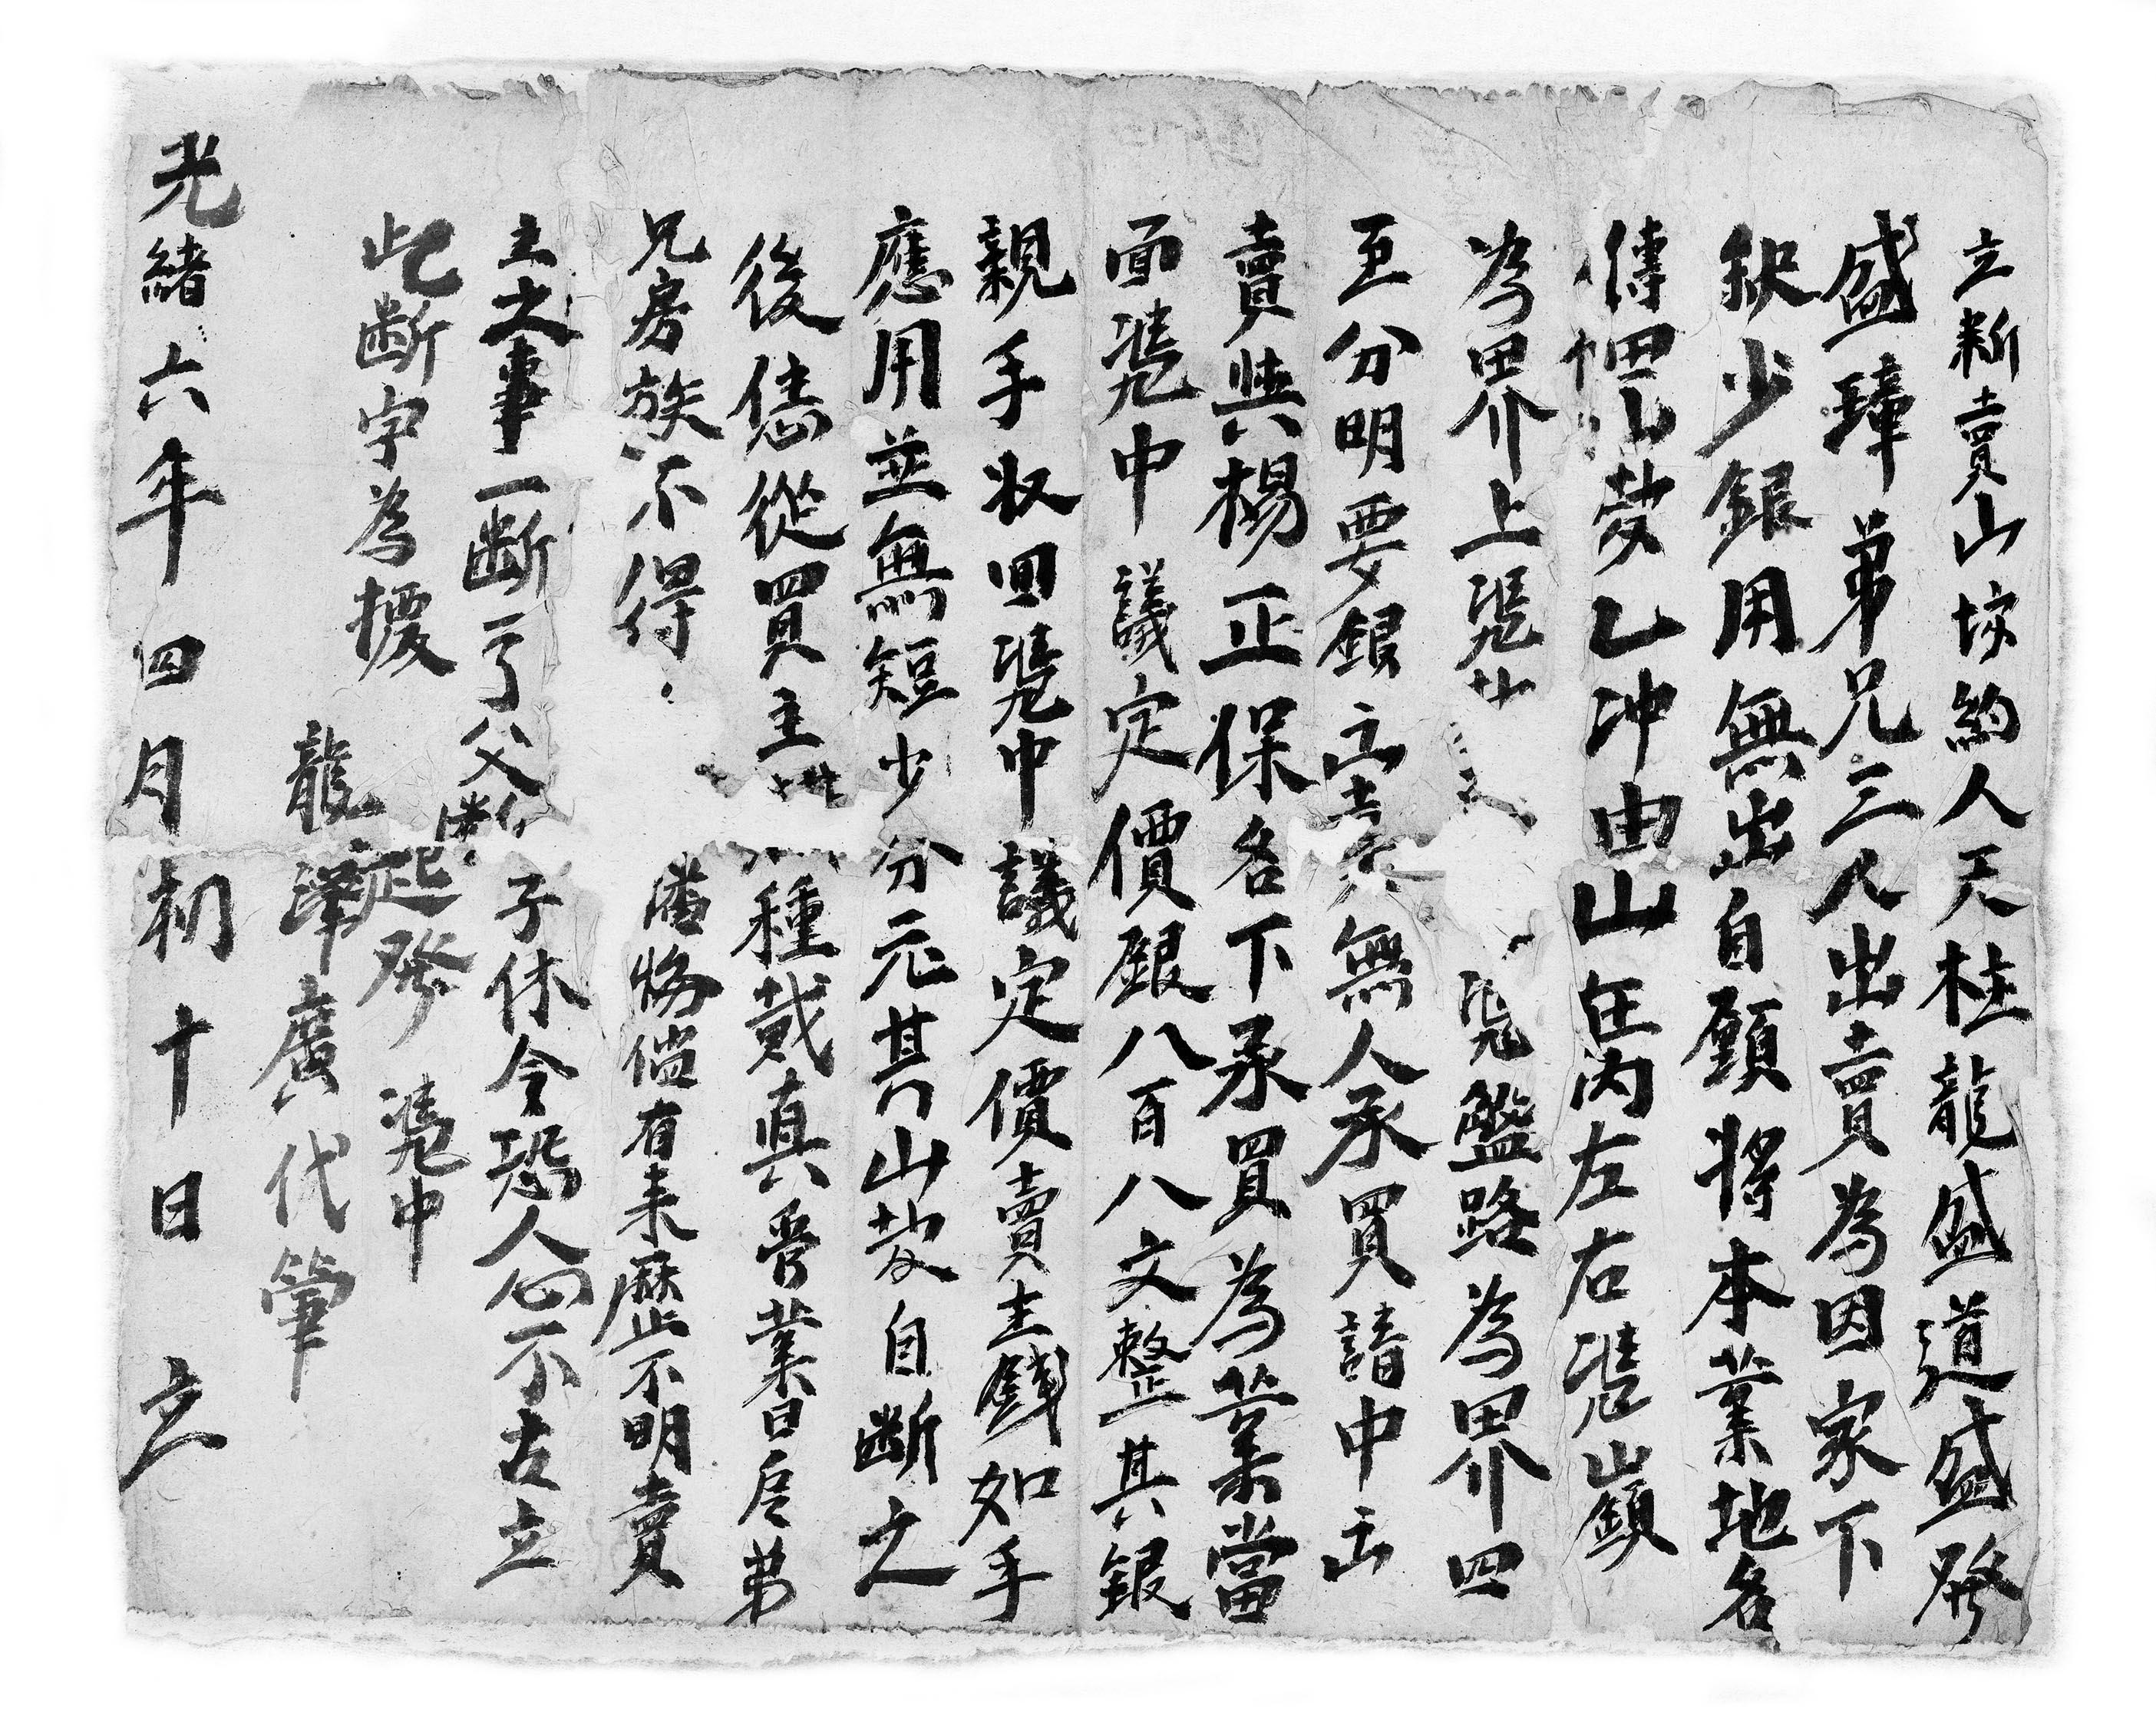 立断賣山坡約人天柱龍盛道盛發
盛璋弟兄三人出賣為因家下
缺少銀用無出自願將本業地名
傳乙冲由山在内左右憑山嶺
為界上憑盤路為界四
至分明要銀立賣無人承買請中出
賣與楊正保名下承買為業當
面憑中議定價銀八百八文整其銀
親手收回憑中議定價賣主錢如手
應用並無短少分元其山坡自断之
後恁從買主種栽真管業日后弟
兄房族不得悔倘有来歷不明賣
主之事一断了父子休今恐人心不古立
此断字為據
起發憑中
龍澤廣代筆
光緒六年四月初十日立